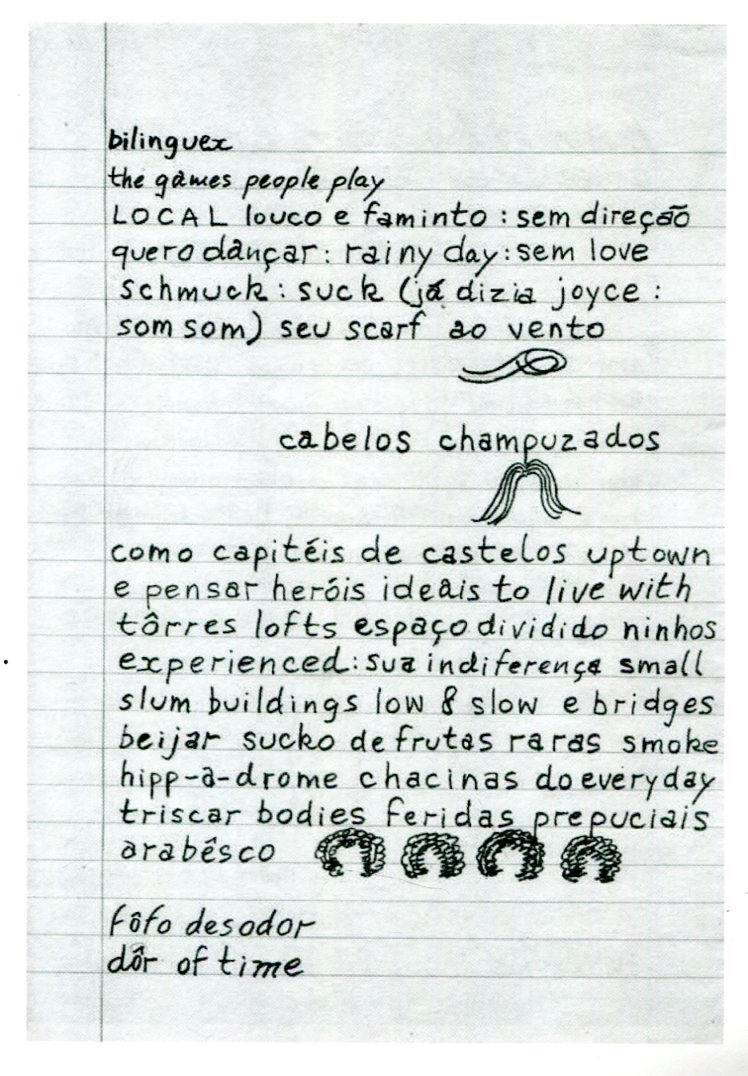 bilinguex
the games people play
LOCAL louco e faminto : sem direção
quero dançar : rainy day : sem love
schmuck : suck (já dizia joyce :
som som) seu scarf ao vento
cabelos champuzados
como capitéis de castelos uptown
e pensar heróis ideais to live with
tôrres lofts espaço dividido ninhos
experienced : sua indiferença small
slum buildings low & slow e bridges
beijar sucko de frutas raras smoke
hipp-a-drome chacinas do everyday
triscar bodies feridas prepuciais
arabêsco
fôfo desodor
dôr of time